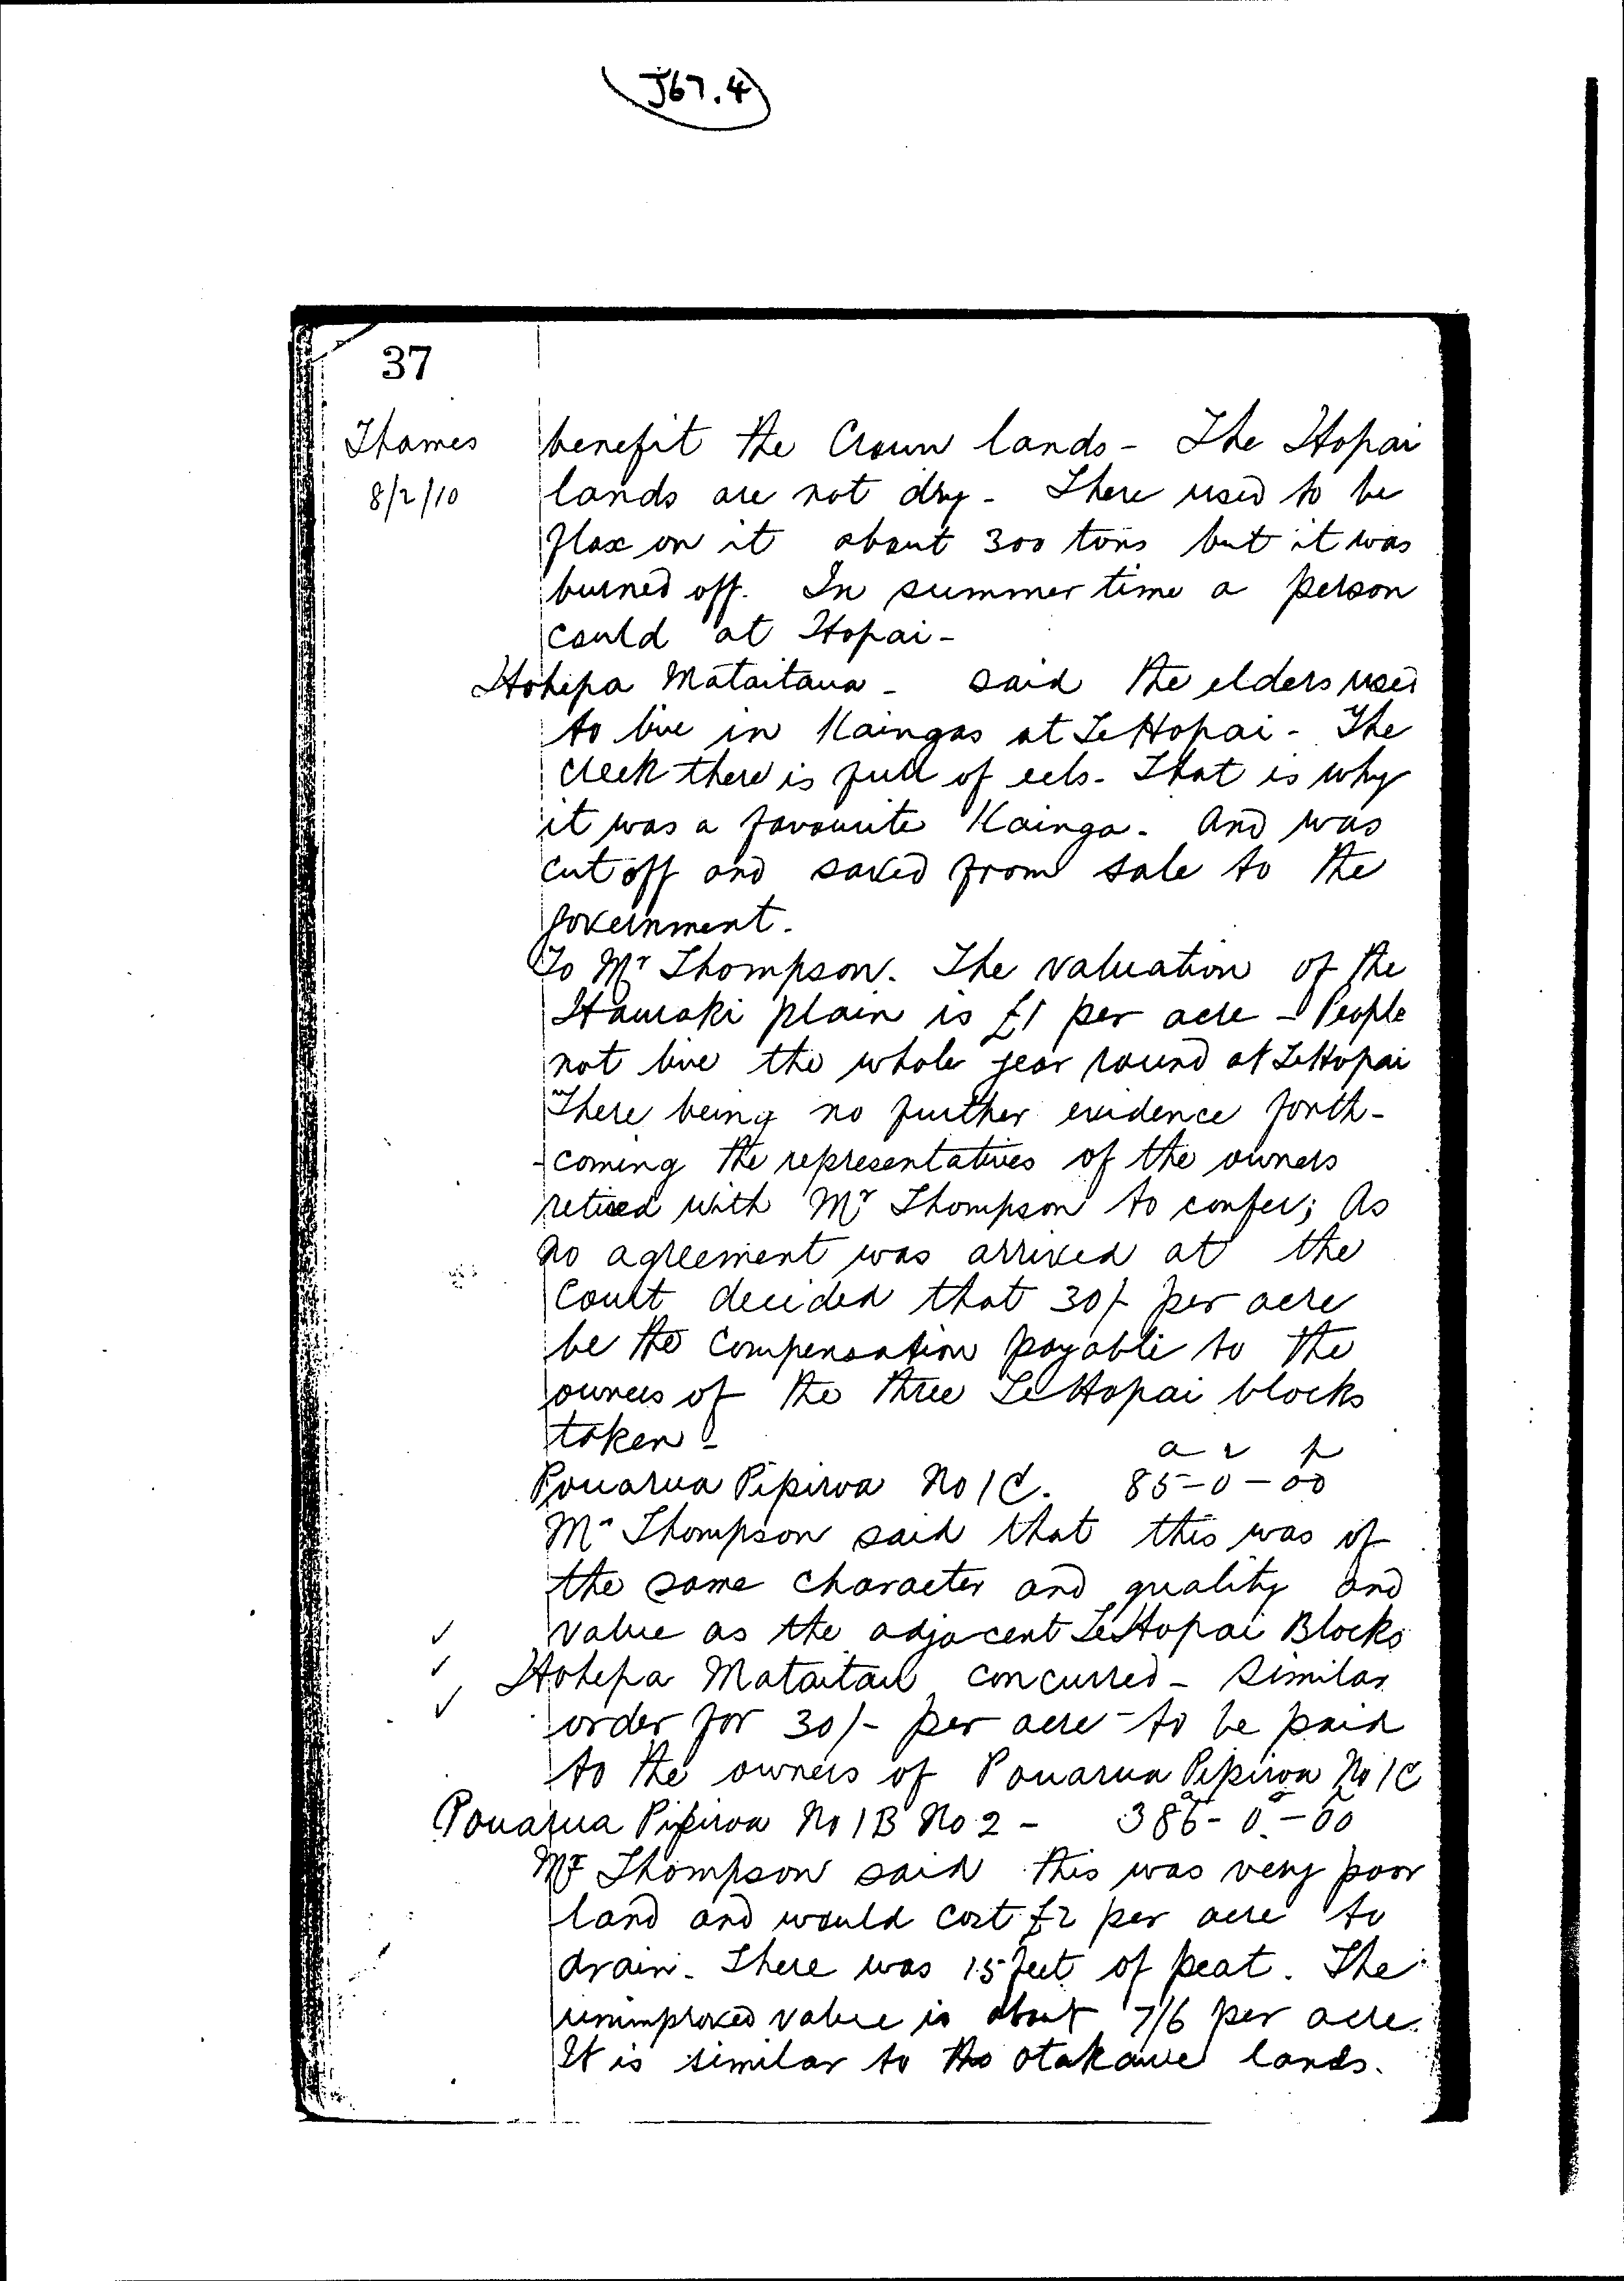 J67.4
37
Thames
8/2/10
benefit the Crown lands - The Hopai
lands are not dry - There used to be
flax on it about 300 tons but it was
burned off. In summer time a person
could at Hopai -
Hohepa Mataitaua - said the elders used
to live in Kaingas at Te Hopai - The
creek there is full of eels - That is why
it was a favourite Kainga - And was
cut off and saved from sale to the
Government -
To Mr Thompson. The valuation of the
Hauraki plain is £1 per acre - People
not live the whole year round at Te Hopai
There being no further evidence forth-
-coming the representatives of the owners
retired with Mr Thompson to confer; As
no agreement was arrived at the
Court decided that 30/- per acre
be the compensation payable to the
owners of the three Te Hopai blocks
taken -
a r p
Pouarua Pipiroa No 1C. 85-0-00
Mr Thompson said that this was of
the same character and quality and
value as the adjacent Te Hopai Blocks
Hohepa Mataitau concurred - Similar
order for 30/- per acre - to be paid
to the owners of Pouarua Pipiroa No 1C
Pouarua Pipiroa No 1B No 2 - - 0 - 00
Mr Thompson said this was very poor
land and would cost £2 per acre to
drain. There was 15 feet of peat. The
unimproved value is about 7/6 per acre.
It is similar to the Otakawe lands.